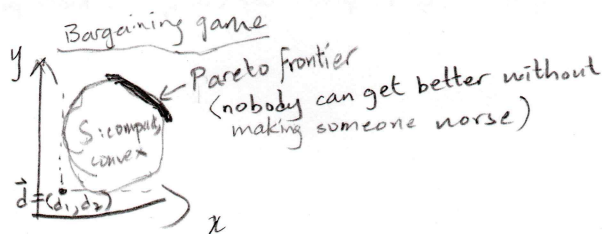 Bargaining game
y
Pareto frontier
(nobody can get better without
making someone worse)
S: compact,
convex
d⃗=(d₁,d₂)
x